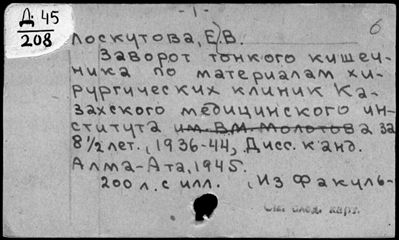 - 1 -
Д 45
208
6
Лоскутова, Е.В.
Заворот тонкого кишеч-
ника по материалам хи-
рургических клиник Ка-
захского медицинского ин-
ститута им. В.М. Молотова за
8 1/2 лет., 1936-44, Дисс. канд.
Алма-Ата, 1945.
200 л. с илл. , Из Факуль-
См. след. карт.